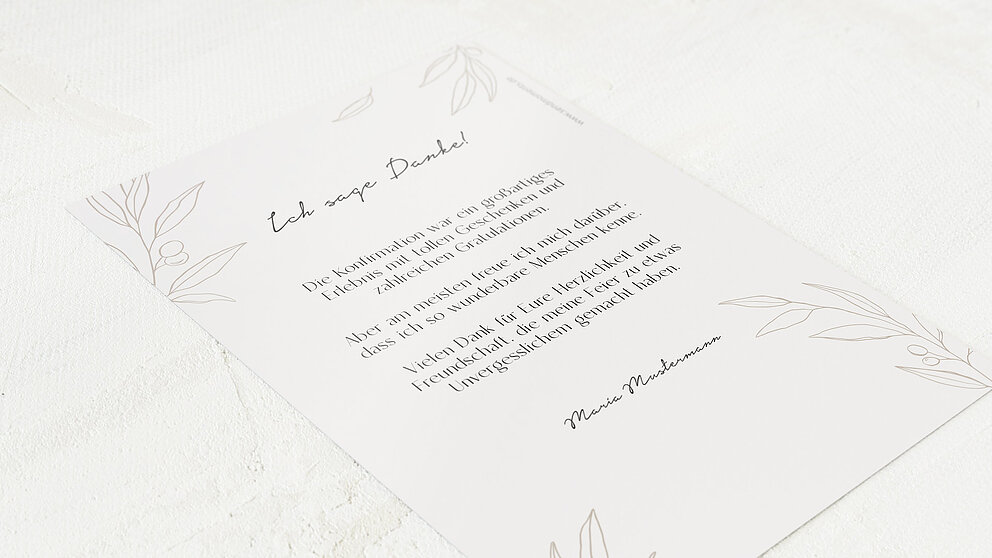 Ich sage Danke!
Die Konfirmation war ein großartiges
Erlebnis mit tollen Geschenken und
zahlreichen Gratulationen.
Aber am meisten freue ich mich darüber,
dass ich so wunderbare Menschen kenne.
Vielen Dank für Eure Herzlichkeit und
Freundschaft, die meine Feier zu etwas
Unvergesslichem gemacht haben.
Maria Mustermann